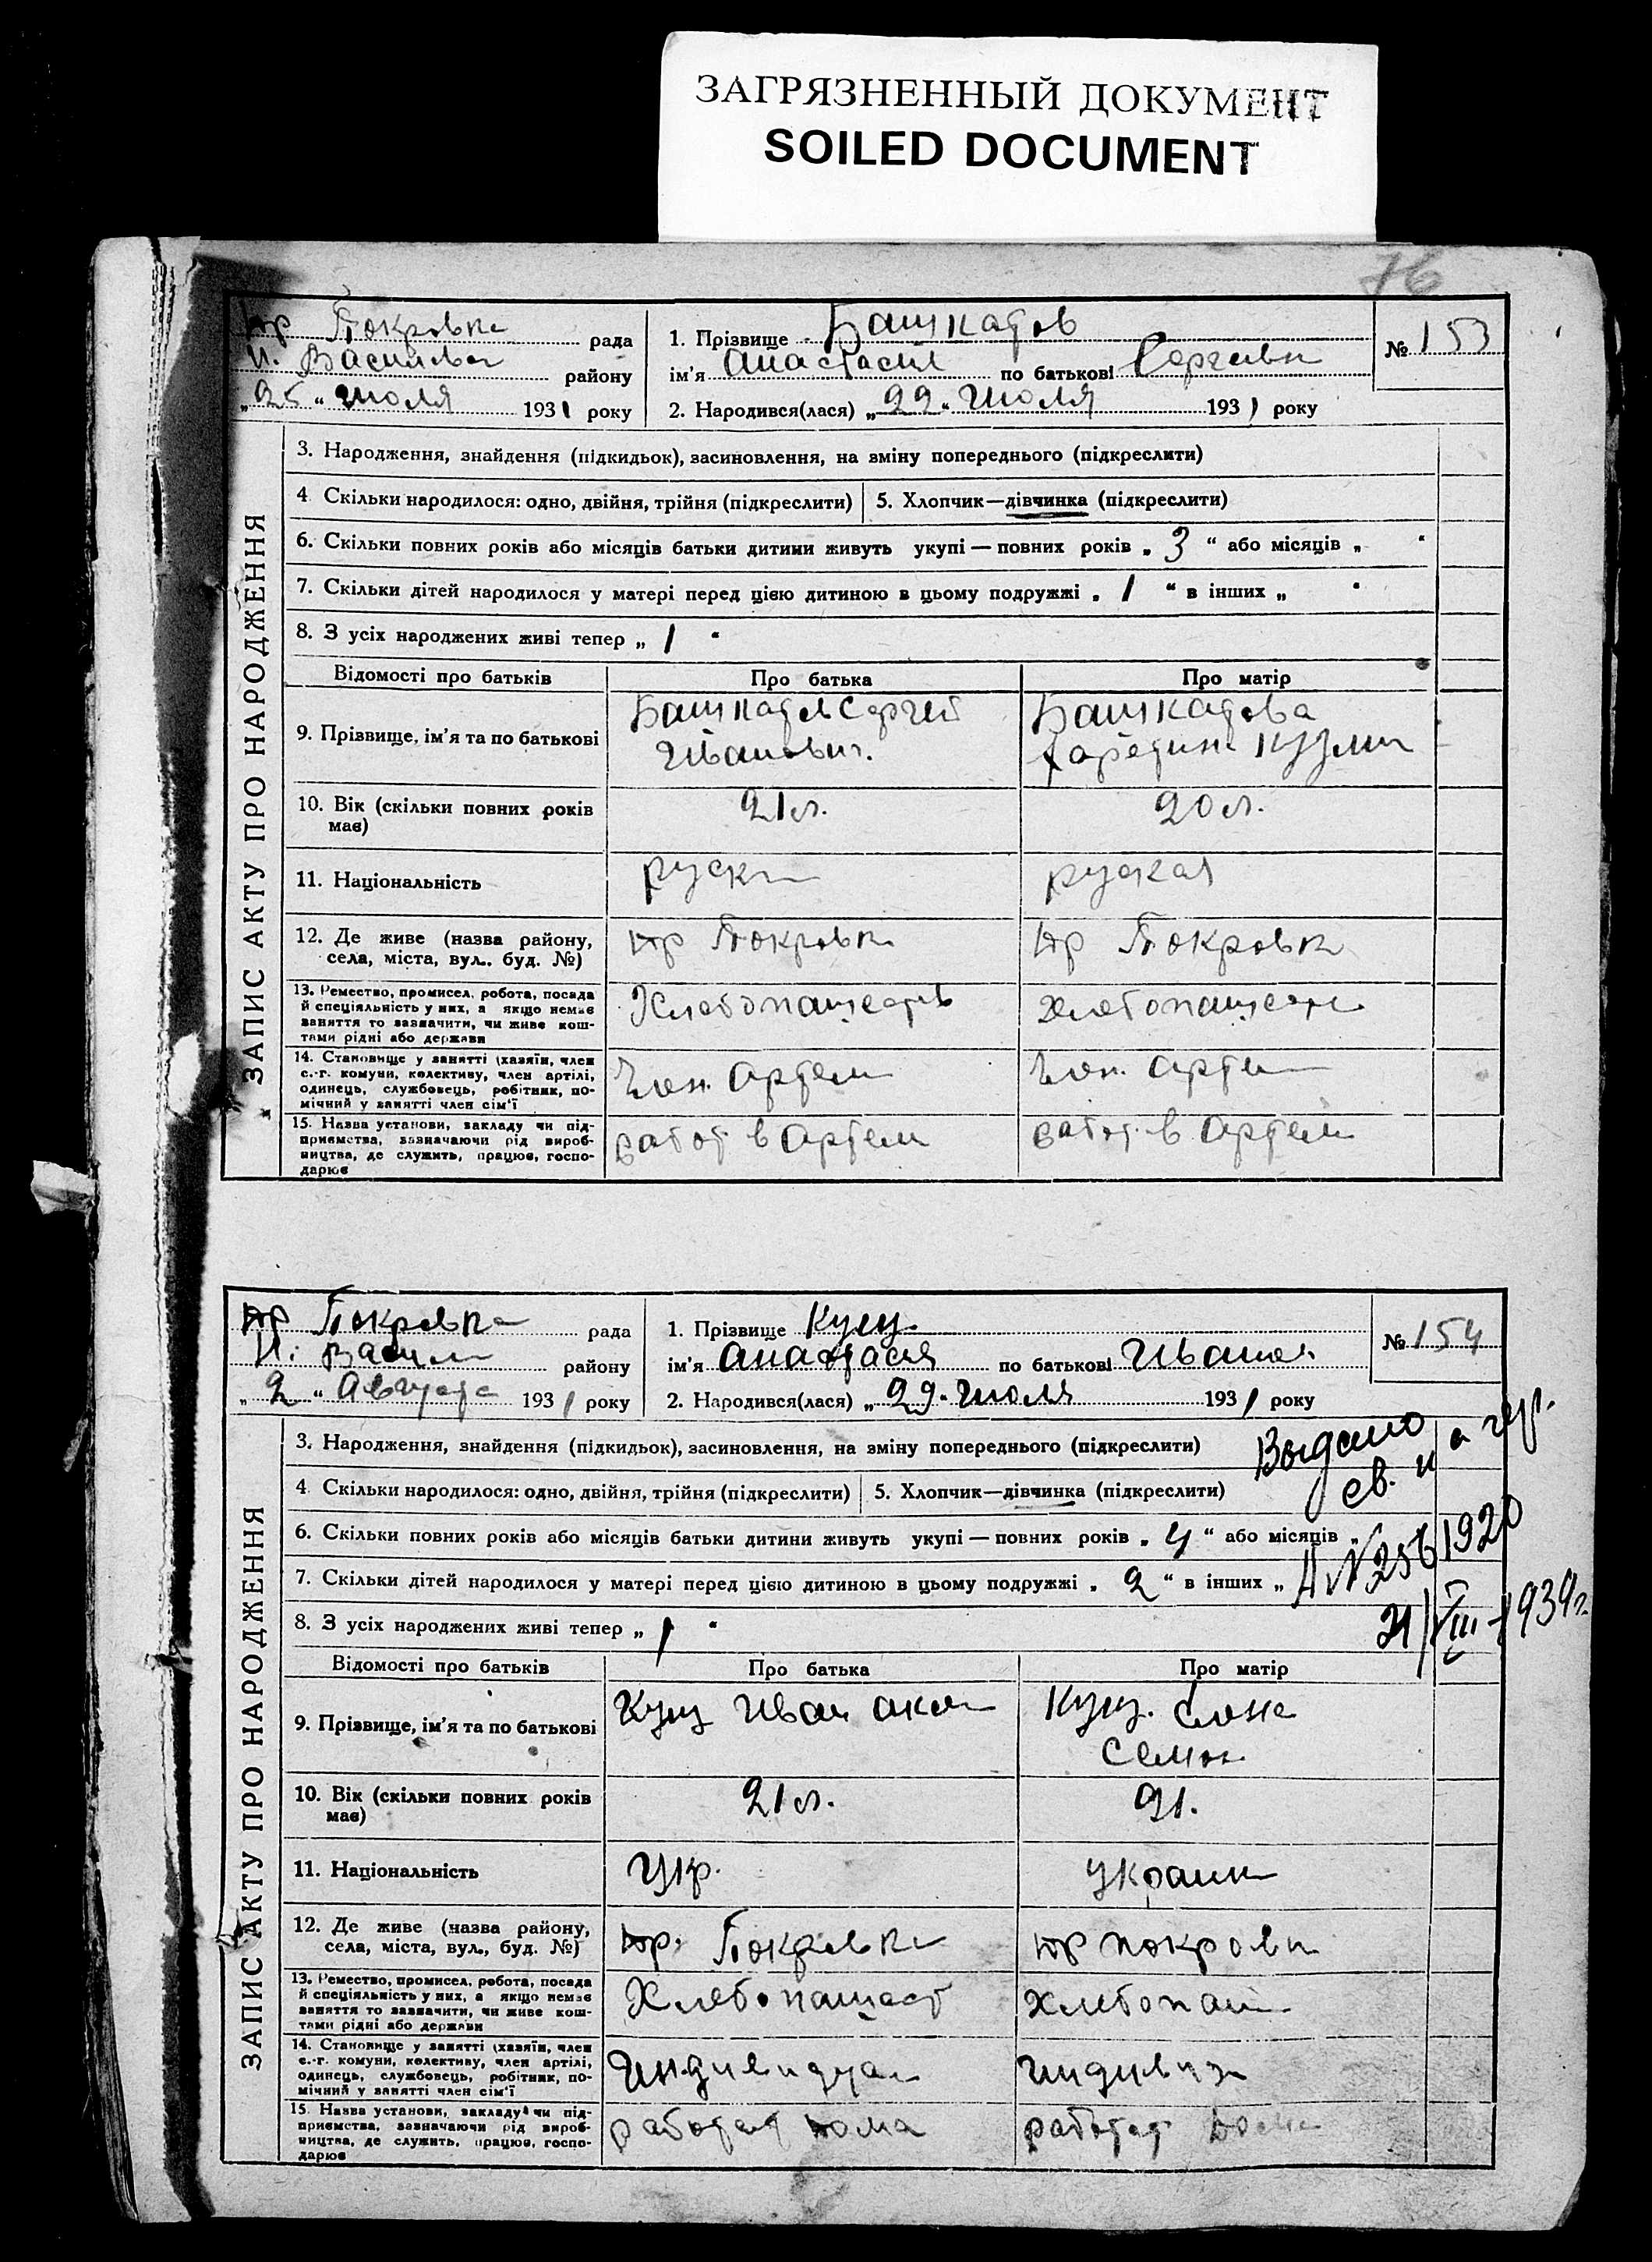 ЗАГРЯЗНЕННЫЙ ДОКУМЕНТ
SOILED DOCUMENT
76
Юр Покровка рада
И. Васильев району
„25“ Июля 1931 року
1. Прізвище Башкатов
ім'я Анастасия по батькові Сергеевн
№ 153
2. Народився(лася) „22“ Июля 1931 року
ЗАПИС АКТУ ПРО НАРОДЖЕННЯ
3. Народження, знайдення (підкидьок), засиновлення, на зміну попереднього (підкреслити)
4. Скільки народилося: одно, двійня, трійня (підкреслити) 5. Хлопчик—дівчинка (підкреслити)
6. Скільки повних років або місяців батьки дитини живуть укупі — повних років „3“ або місяців „ “
7. Скільки дітей народилося у матері перед цією дитиною в цьому подружжі „1“ в інших „ “
8. З усіх народжених живі тепер „1“
Відомості про батьків Про батька Про матір
9. Прізвище, ім'я та по батькові
Башкатов Сергей
Иванович.
Башкатова
Кузми
10. Вік (скільки повних років має) 21 л. 20 л.
11. Національність руски руская
12. Де живе (назва району, села, міста, вул., буд. №) Юр Покровка Юр Покровка
13. Ремество, промисел, робота, посада й спеціяльність у них, а якщо немає заняття то зазначити, чи живе коштами рідні або держави
Хлебопашеств Хлебопашеств
14. Становище у занятті (хазяїн, член с.-г. комуни, колективу, член артілі, одинець, службовець, робітник, помічний у занятті член сім'ї
Член. Артели Член. Артели
15. Назва установи, закладу чи підприємства, зазначаючи рід виробництва, де служить, працює, господарює
работ в Артели работ. в Артели
Юр Покровка рада
И. Васил району
„2“ Августа 1931 року
1. Прізвище Кущ.
ім'я Анастасия по батькові Иванов.
№ 154
2. Народився(лася) „29“ Июля 1931 року
ЗАПИС АКТУ ПРО НАРОДЖЕННЯ
3. Народження, знайдення (підкидьок), засиновлення, на зміну попереднього (підкреслити)
4. Скільки народилося: одно, двійня, трійня (підкреслити) 5. Хлопчик—дівчинка (підкреслити)
Выдано
св.
6. Скільки повних років або місяців батьки дитини живуть укупі — повних років „4“ або місяців „
7. Скільки дітей народилося у матері перед цією дитиною в цьому подружжі „2“ в інших „
№2561920
8. З усіх народжених живі тепер „1“
31/VIII-1939г.
Відомості про батьків Про батька Про матір
9. Прізвище, ім'я та по батькові
Кущ Иван
Кущ. Елена
Семен.
10. Вік (скільки повних років має) 21 л. 21.
11. Національність Укр. Украин
12. Де живе (назва району, села, міста, вул., буд. №) Юр. Покровка Юр Покровк
13. Ремество, промисел, робота, посада й спеціяльність у них, а якщо немає заняття то зазначити, чи живе коштами рідні або держави
Хлебопашест Хлебопаш
14. Становище у занятті (хазяїн, член с.-г. комуни, колективу, член артілі, одинець, службовець, робітник, помічний у занятті член сім'ї
Индивидуал Индивид
15. Назва установи, закладу чи підприємства, зазначаючи рід виробництва, де служить, працює, господарює
работает дома работает дома